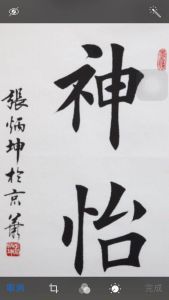 神怡
張炳坤於京華
取消
完成